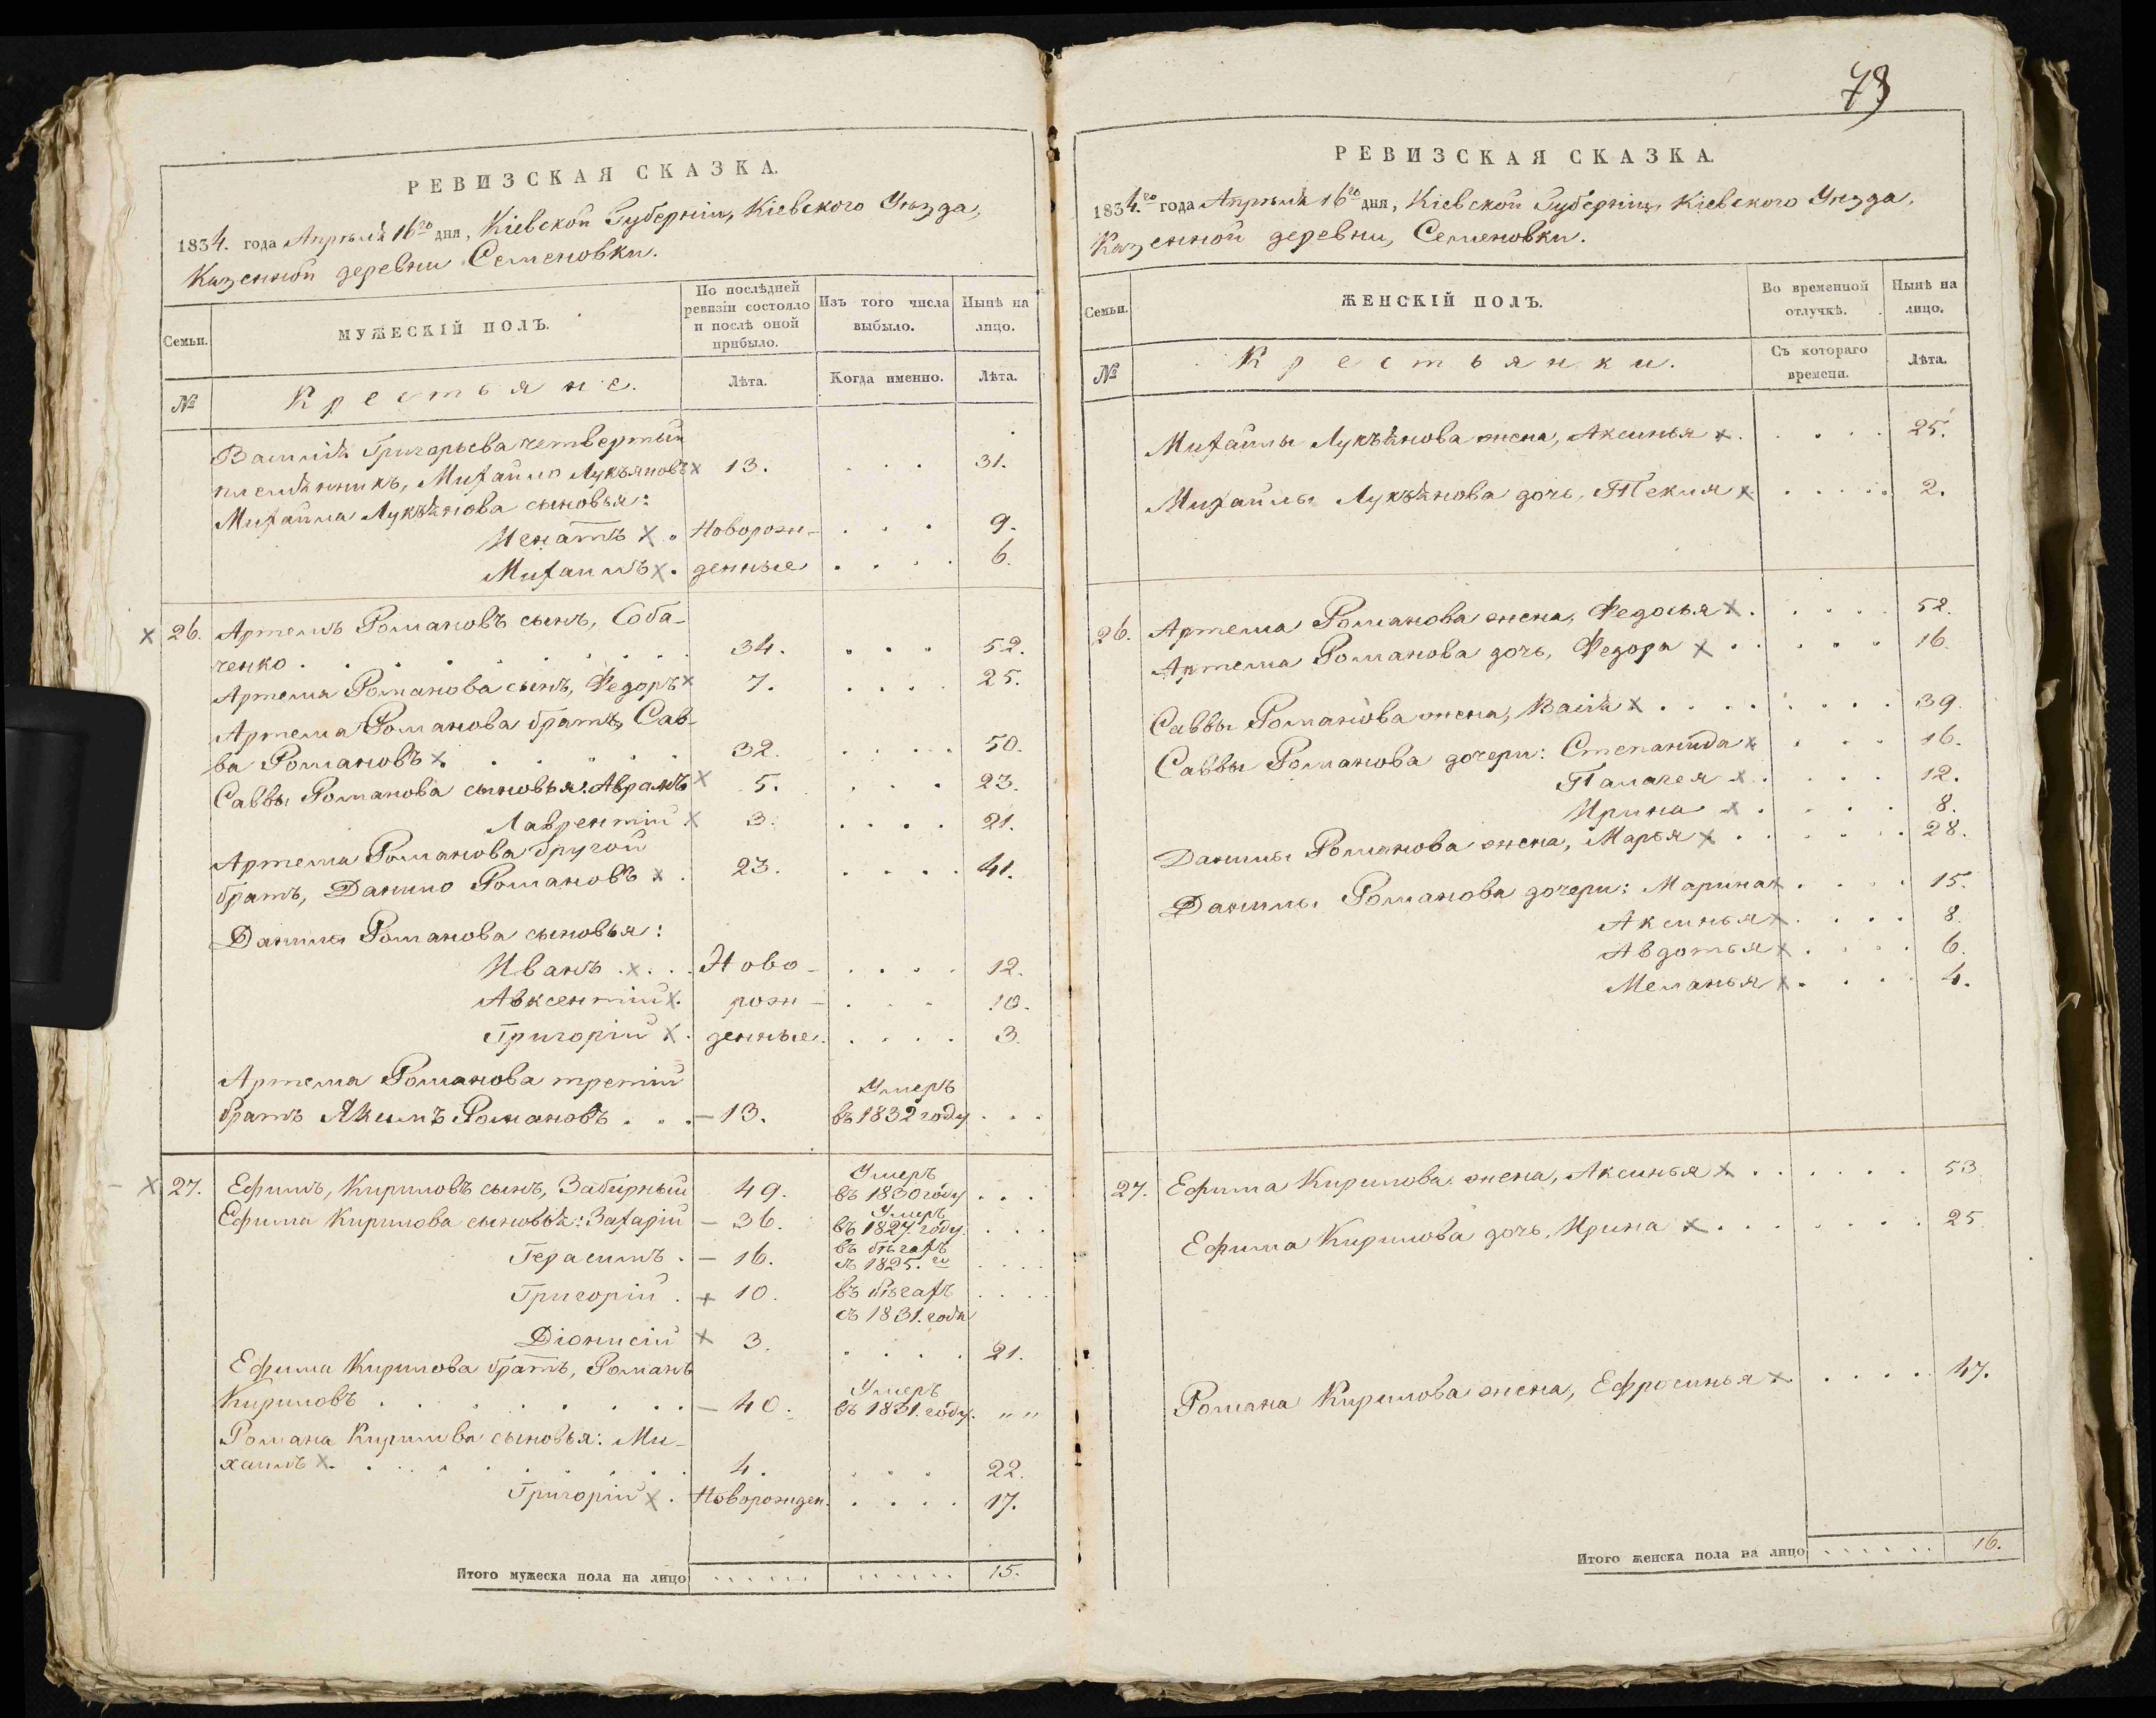 РЕВИЗСКАЯ СКАЗКА.
1834. года Апрѣля 16го дня, Кіевской Губерніи, Кіевского Уѣзда,
Казенной деревни Семеновки.
Семьи.
МУЖЕСКІЙ ПОЛЪ.
По послѣдней ревизіи состояло и послѣ оной прибыло.
Изъ того числа выбыло.
Нынѣ на лицо.
№
Крестьяне.
Лѣта.
Когда именно.
Лѣта.
Василія Григорьева четвертый
племянникъ, Михайло Лукъяновъ х 13. . . . 31.
Михайла Лукъянова сыновья:
Игнатъ х . Новорож- . . . 9.
Михаилъ х . денные . . . . 6.
х 26. Артемъ Романовъ сынъ, Соба-
ченко . . . . . . . . 34. . . . 52.
Артема Романова сынъ, Федоръ х 7. . . . . 25.
Артема Романова братъ, Сав-
ва Романовъ х . . . . . 32. . . . . 50.
Саввы Романова сыновья: Аврамъ х 5. . . . 23.
Лаврентій х 3. . . . . 21.
Артема Романова другой
братъ, Данило Романовъ х . 23. . . . . 41.
Данилы Романова сыновья:
Иванъ . х . . Ново- . . . . 12.
Авксентій х . рож- . . . 10.
Григорій х . денные. . . . . 3.
Артема Романова третій
Умеръ
братъ Якимъ Романовъ . . . — 13. въ 1832 году . . .
— х 27. Ефимъ, Кириловъ сынъ, Забирный 49. Умеръ въ 1830 году . . .
Ефима Кирилова сыновья: Захарій — 36. Умеръ въ 1827. году. . . .
Герасимъ . — 16. въ бѣгахъ съ 1825. го . . . .
Григорій . + 10. въ бѣгахъ съ 1831. года . . . .
Діонисій х 3. . . . . 21.
Ефима Кирилова братъ, Романъ
Кириловъ . . . . . . . — 40. Умеръ въ 1831. году. „ „
Романа Кирилова сыновья: Ми-
хаилъ х . . . . . . . . 4. . . . 22.
Григорій х . Новорожден. . . . . 17.
Итого мужеска пола на лицо 15.
73
РЕВИЗСКАЯ СКАЗКА.
1834.го года Апрѣля 16го дня, Кіевской Губерніи, Кіевского Уѣзда,
Казенной деревни, Семеновки.
Семьи.
ЖЕНСКІЙ ПОЛЪ.
Во временной отлучкѣ.
Нынѣ на лицо.
№
Крестьянки.
Съ котораго времени.
Лѣта.
Михайлы Лукъянова жена, Аксинья х . . . . . 25.
Михайлы Лукъянова дочь, Текля х . . . . . 2.
26. Артема Романова жена, Федосья х . . . . . 52.
Артема Романова дочь, Федора х . . . . . 16.
Саввы Романова жена, х . . . . . . . . 39.
Саввы Романова дочери: Степанида х . . . 16.
Палагея х . . . . 12.
Ирина х . . . . 8.
Данилы Романова жена, Марья х . . . . . . 28.
Данилы Романова дочери: Марина х . . . . 15.
Аксинья х . . . . 8.
Авдотья х . . . . 6.
Меланья х . . . . 4.
27. Ефима Кирилова жена, Аксинья х . . . . . . 53.
Ефима Кирилова дочь, Ирина х . . . . . . . 25.
Романа Кирилова жена, Ефросинья х . . . . . 47.
Итого женска пола на лицо 16.